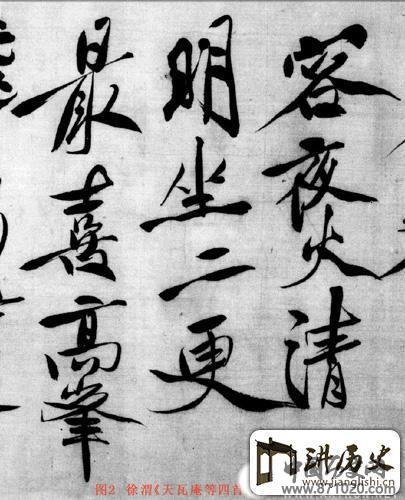 容夜火清
明坐二更
最喜高峯
图2 徐渭《天瓦庵等四首
讲历史
www.jianglishi.cn
www.871020.com